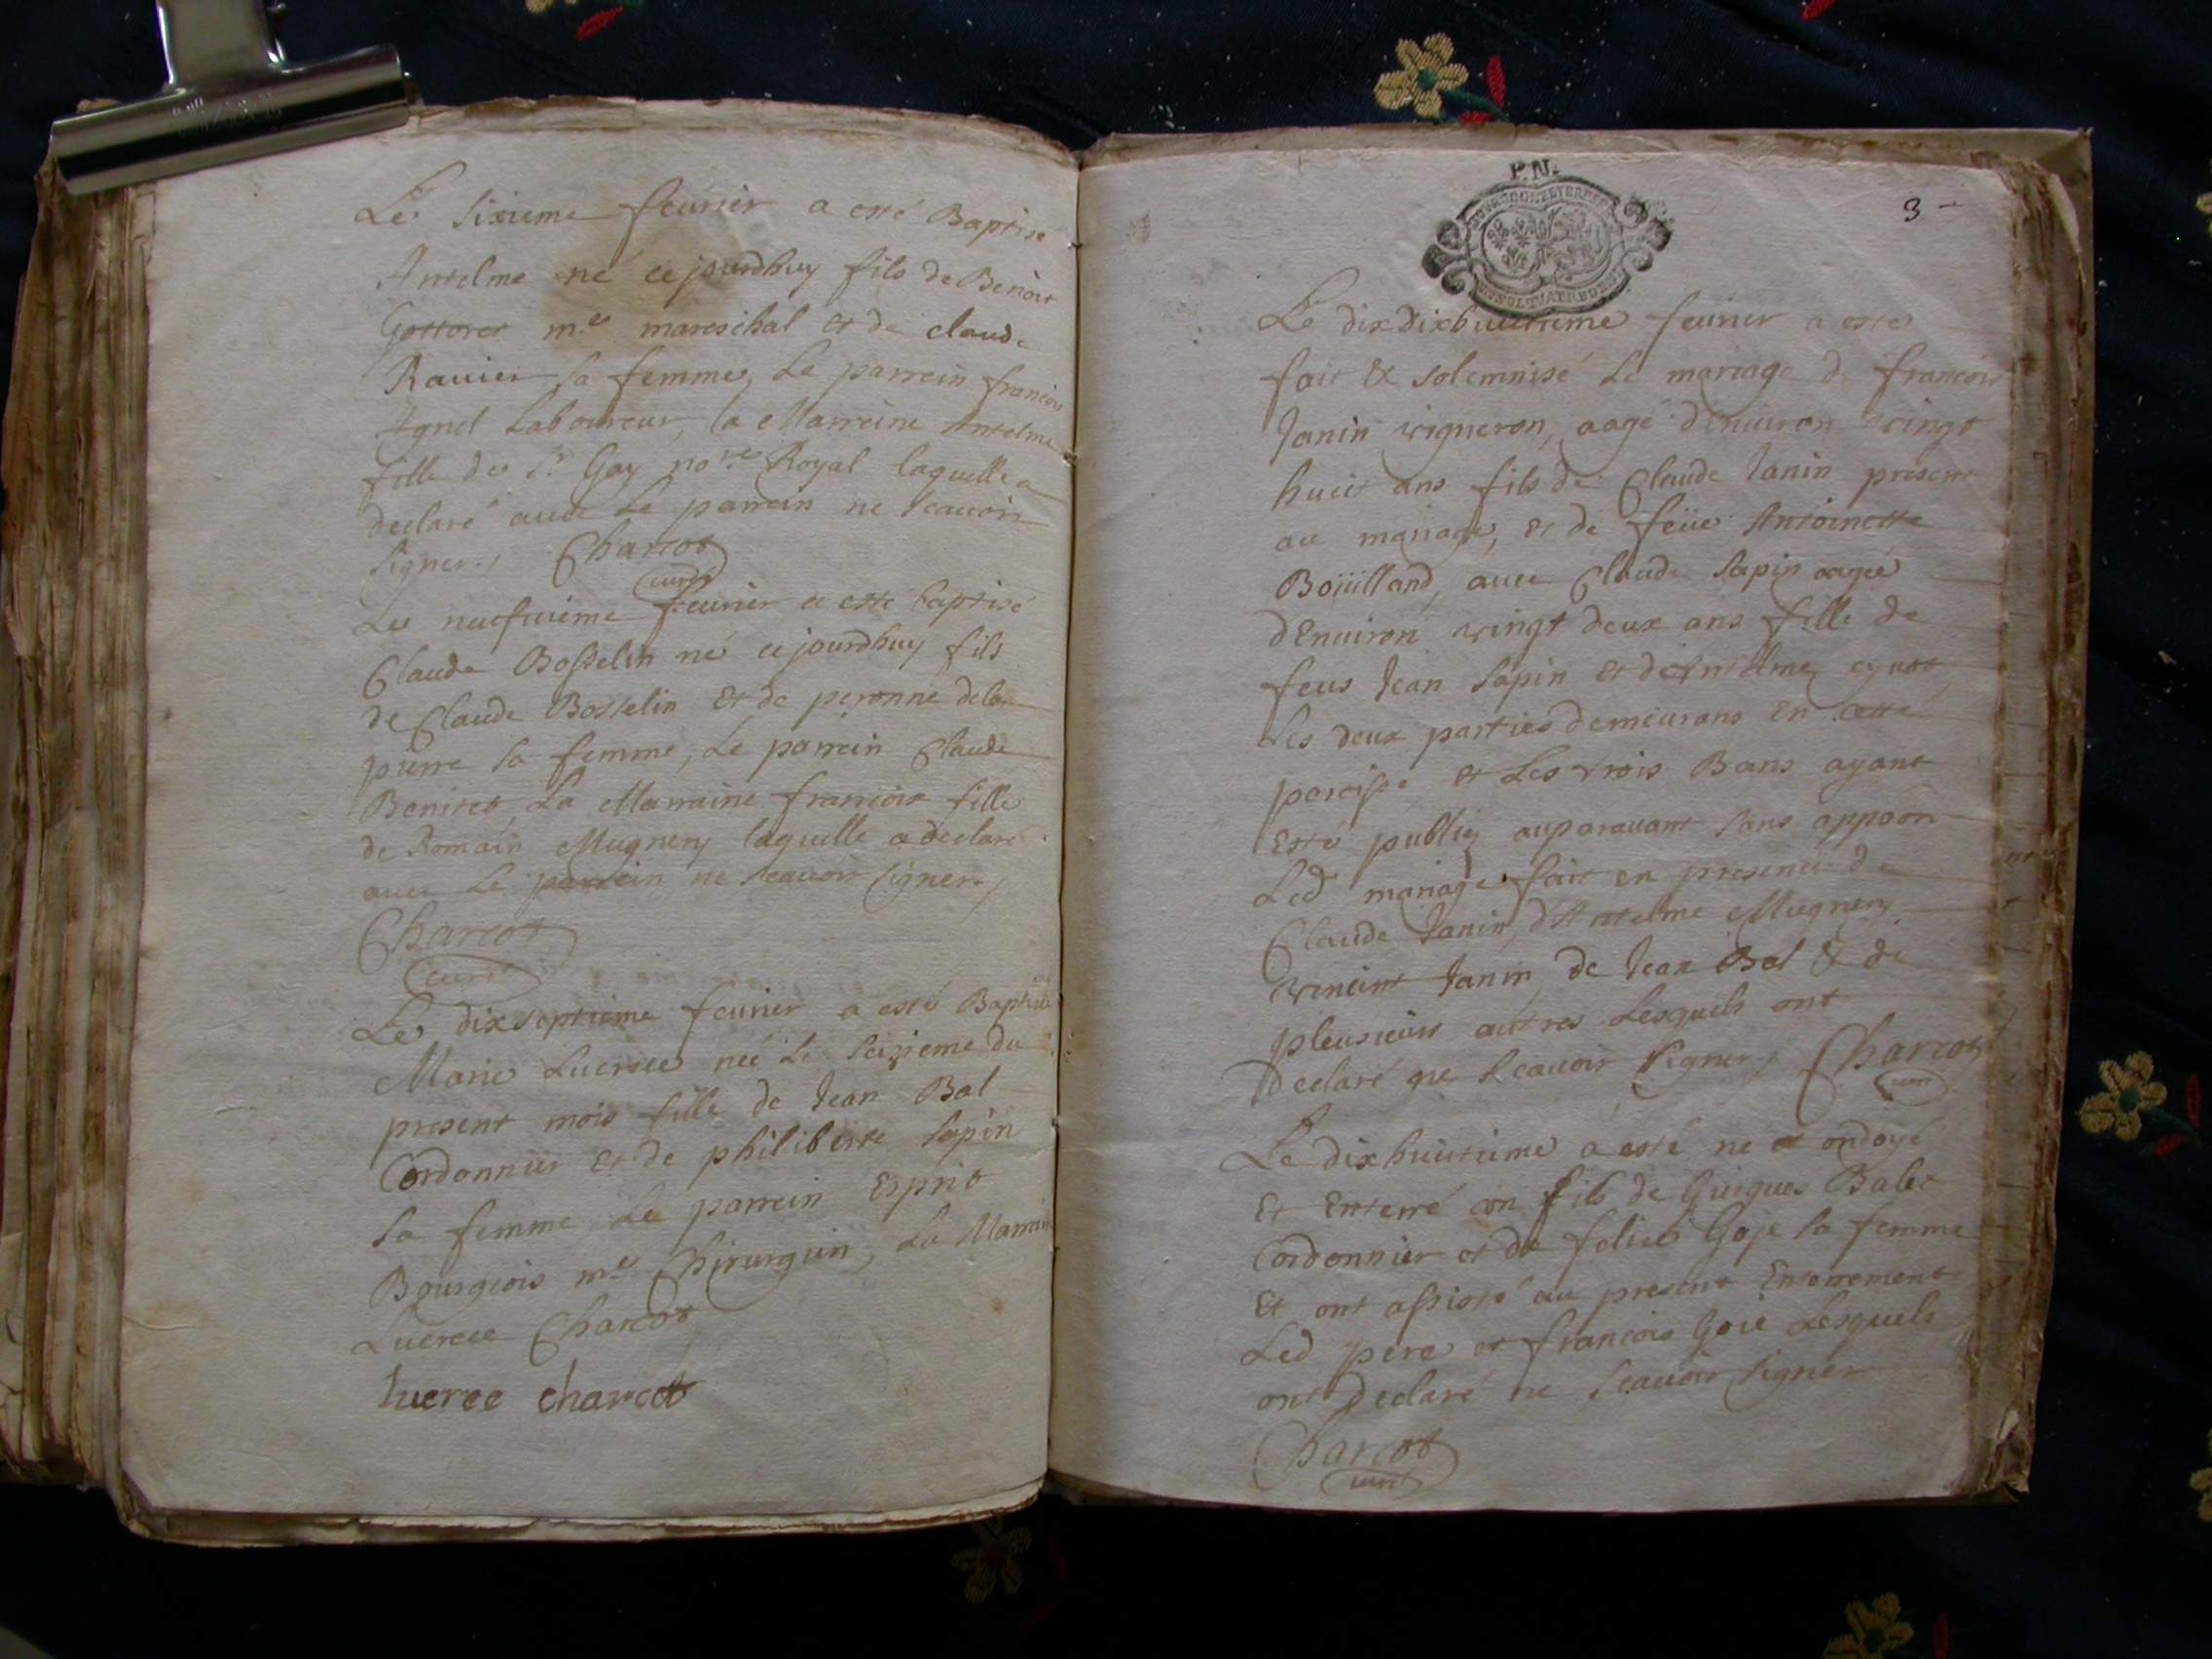 Le sixieme feurier a esté Baptisé
Antelme né ce jourdhuy fils de Benoit
Gottoret m.e mareschal et de claude
Rauier sa femme, Le parrein francois
Agnel Laboureur, la Marreine Antelme
fille de Sr Gay nore Royal laquelle a
declaré auec Le parrein ne scauoir
signer./ Charcot
curé
Le neufuieme feurier a esté baptisé
Claude Bosselin né ce jourdhuy fils
de Claude Bosselin Et de peronne dela
pierre sa femme, Le parrein Claude
La Marraine francoise fille
de Romain Mugnery laquelle a declaré
auec Le parrein ne scauoir signer./
Charcot
curé
Le dixseptieme feurier a esté Baptisée
Marie Lucrece née Le seizieme du
present mois fille de Jean Bal
Cordonnier Et de philiberte Sapin
sa femme Le parrein Esprit
Bourgeois me Chirurgien, La Marreine
Lucrece Charcot
lucrece charcot
P.N.
3
Le dix dixhuictieme feurier a esté
fait & solemnisé Le mariage de francois
Janin vigneron, aagé d'enuiron vingt
huict ans fils de Claude Janin present
au mariage, et de feüe Antoinette
Boüilland, auec Claude Sapin aagée
d'Enuiron vingt deux ans fille de
feus Jean Sapin Et d'Antelme
Les deux parties demeurans En cette
paroisse et Les trois Bans ayant
Esté publiez auparauant sans appoôn
Led mariage fait en presence de
Claude Janin, d'Antelme Mugnery
vincent Janin, de Jean Bal & de
pleusieurs autres Lesquels ont
declaré ne scauoir signer./ Charcot
curé
Le dixhuictieme a esté né et ondoyé
Et Enterré un fils de Guigues Balet
Cordonnier et de felice Goje sa femme
Et ont assisté au present Enterrement
Led père et francois Goie Lesquels
ont declaré ne scauoir signer
Charcot
curé